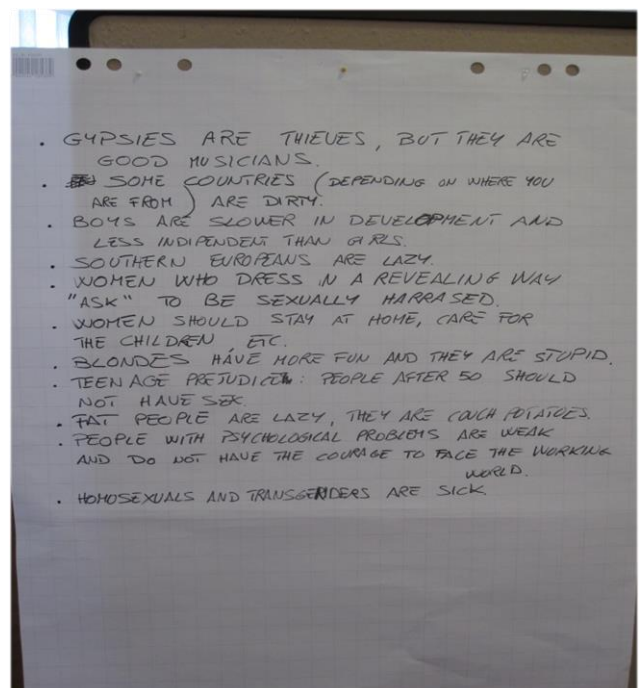 . GYPSIES ARE THIEVES, BUT THEY ARE
GOOD MUSICIANS.
. SOME COUNTRIES (DEPENDING ON WHERE YOU
ARE FROM) ARE DIRTY.
. BOYS ARE SLOWER IN DEVELOPMENT AND
LESS INDIPENDENT THAN GIRLS.
. SOUTHERN EUROPEANS ARE LAZY.
. WOMEN WHO DRESS IN A REVEALING WAY
"ASK" TO BE SEXUALLY HARRASED.
. WOMEN SHOULD STAY AT HOME, CARE FOR
THE CHILDREN, ETC.
. BLONDES HAVE MORE FUN AND THEY ARE STUPID.
. TEEN AGE PREJUDICE: PEOPLE AFTER 50 SHOULD
NOT HAVE SEX.
. FAT PEOPLE ARE LAZY, THEY ARE COUCH POTATOES.
. PEOPLE WITH PSYCHOLOGICAL PROBLEMS ARE WEAK
AND DO NOT HAVE THE COURAGE TO FACE THE WORKING
WORLD.
. HOMOSEXUALS AND TRANSGENDERS ARE SICK